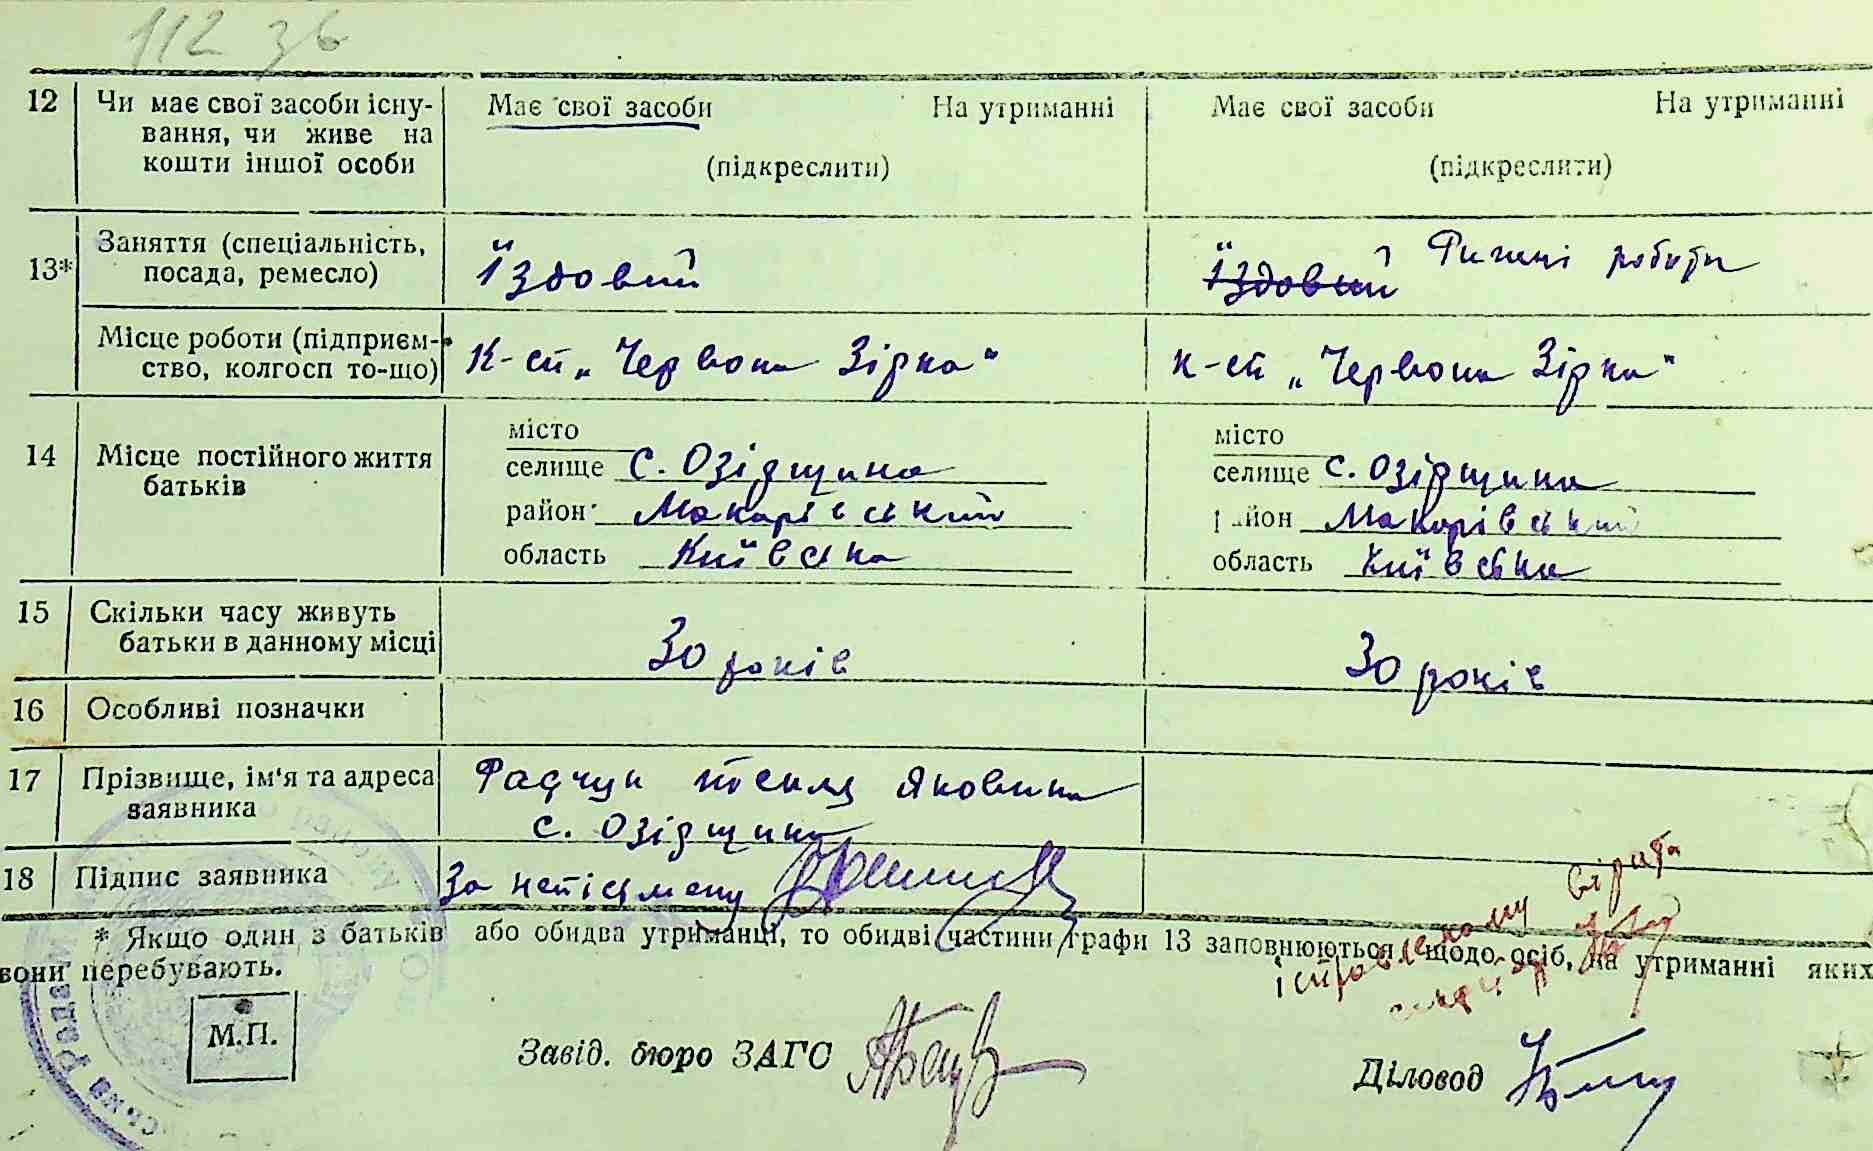 112 зб
12 Чи має свої засоби існу- Має свої засоби На утриманні Має свої засоби На утриманні
вання, чи живе на
кошти іншої особи (підкреслити) (підкреслити)
13* Заняття (спеціальність, Їздовий Їздовий Ріжні роботи
посада, ремесло)
Місце роботи (підприєм- К-сп „Червона Зірка" К-сп „Червона Зірка"
ство, колгосп то-що)
14 Місце постійного життя місто місто
батьків селище с. Озірщина селище с. Озірщина
район Макарівський район Макарівський
область Київська область Київська
15 Скільки часу живуть 30 років 30 років
батьки в данному місці
16 Особливі позначки
17 Прізвище, ім'я та адреса Радчук Текля Яковина
заявника с. Озірщина
18 Підпис заявника За неписьмену
* Якщо один з батьків або обидва утриманці, то обидві частини графи 13 заповнюються щодо осіб, на утриманні яких
вони перебувають.
М.П. Завід. бюро ЗАГС Діловод